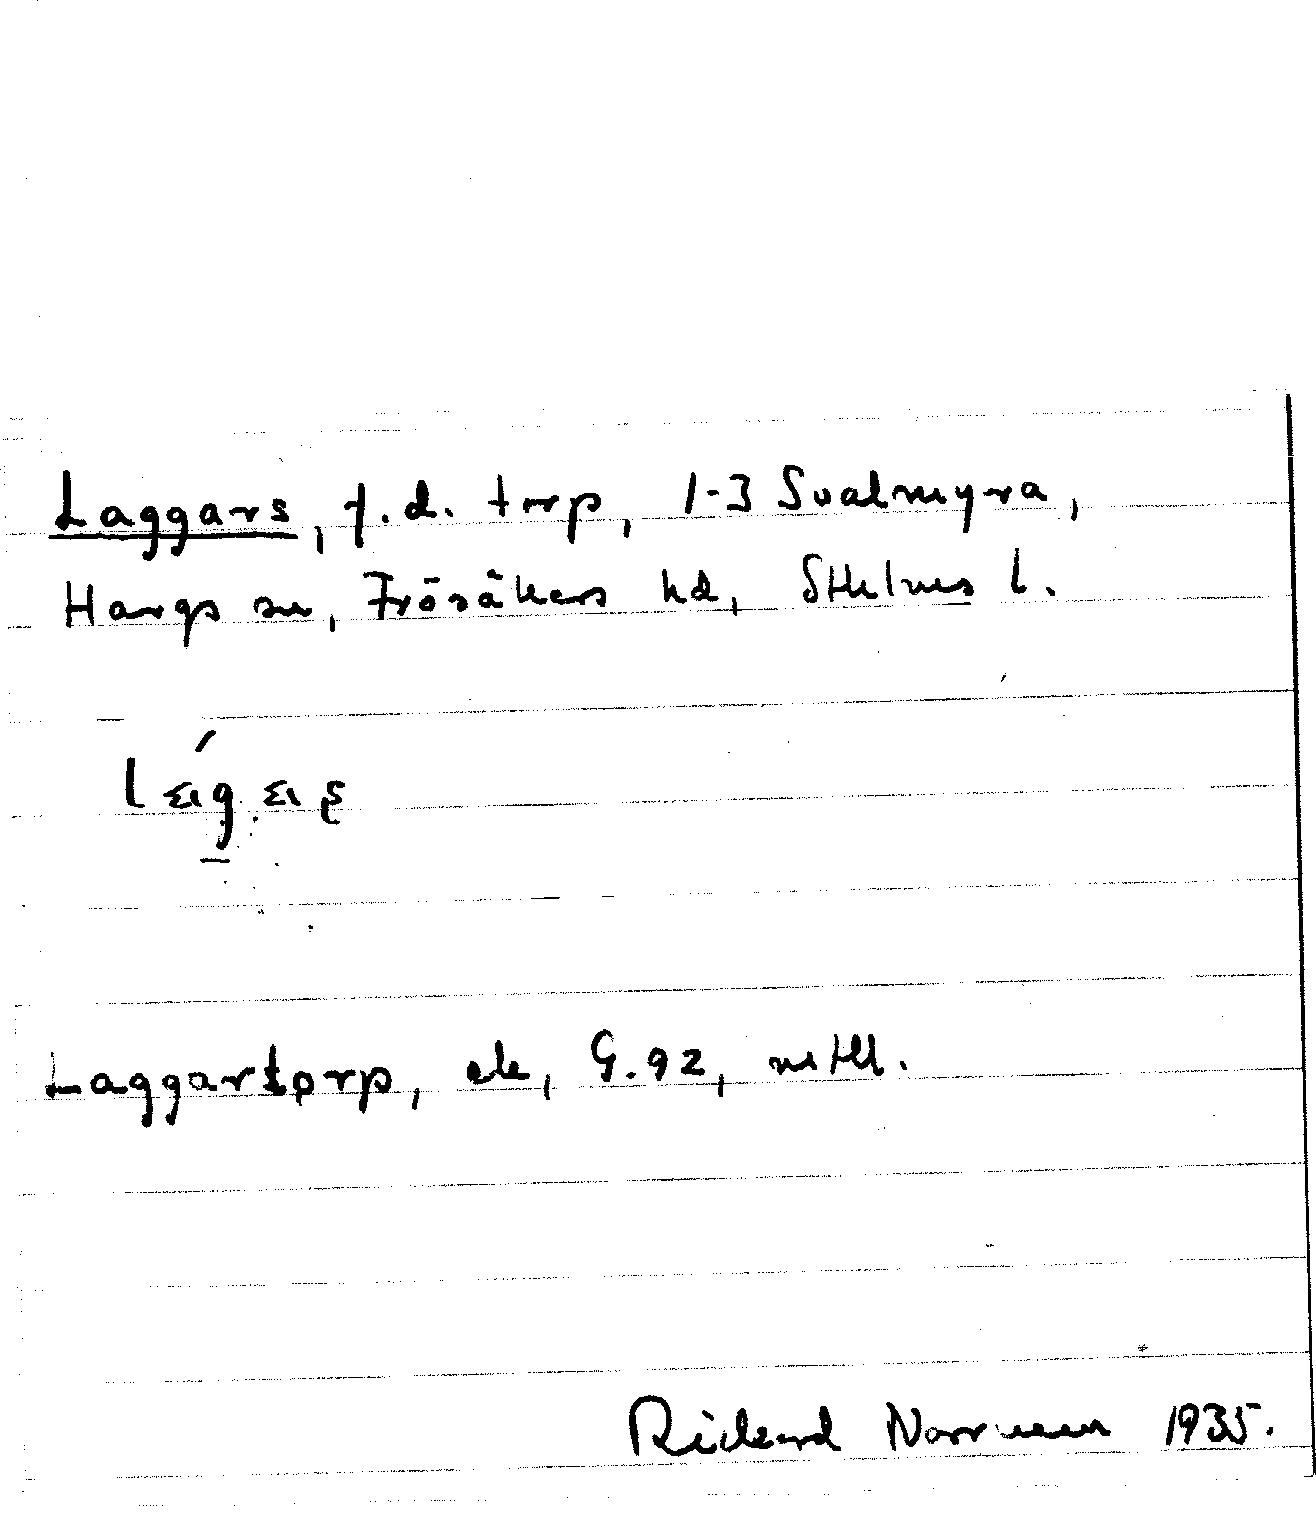 Laggars, f.d. torp, 1-3 Svalmyra,
Hargs sn, Frösåkers hd, Sthlms l.
Laggartorp, ek, G.92, mtll.
Rickard Norrman 1935.